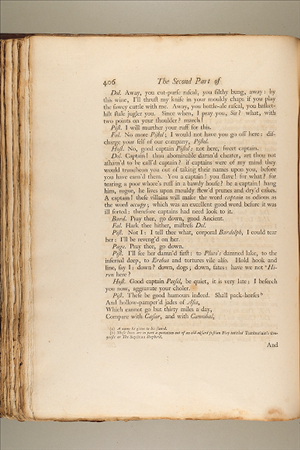 406 The Second Part of
Dol. Away, you cut-purse rascal, you filthy bung, away: by
this wine, I'll thrust my knife in your mouldy chaps if you play
the sawcy cuttle with me. Away, you bottle-ale rascal, you basket-
hilt stale jugler you. Since when, I pray you, Sir? what, with
two points on your shoulder? much!
Pist. I will murther your ruff for this.
Fal. No more Pistol; I would not have you go off here: dis-
charge your self of our company, Pistol.
Host. No, good captain Pistol: not here, sweet captain.
Dol. Captain! thou abominable damn'd cheater, art thou not
asham'd to be call'd captain? if captains were of my mind they
would truncheon you out of taking their names upon you, before
you have earn'd them. You a captain! you slave! for what? for
tearing a poor whore's ruff in a bawdy-house? he a captain! hang
him, rogue, he lives upon mouldy stew'd prunes and dry'd cakes.
A captain! these villains will make the word captain as odious as
the word occupy; which was an excellent good word before it was
ill sorted: therefore captains had need look to it.
Bard. Pray thee, go down, good Ancient.
Fal. Hark thee hither, mistress Dol.
Pist. Not I: I tell thee what, corporal Bardolph, I could tear
her: I'll be reveng'd on her.
Page. Pray thee, go down.
Pist. I'll see her damn'd first: to Pluto's damned lake, to the
infernal deep, to Erebus and tortures vile also. Hold hook and
line, say I: down! down, dogs; down, fates: have we not Hi-
ren here?
Host. Good captain Peesel, be quiet, it is very late: I beseech
you now, aggravate your choler.
Pist. These be good humours indeed. Shall pack-horses
And hollow-pamper'd jades of Asia,
Which cannot go but thirty miles a day,
Compare with Cæsar, and with Cannibal,
And